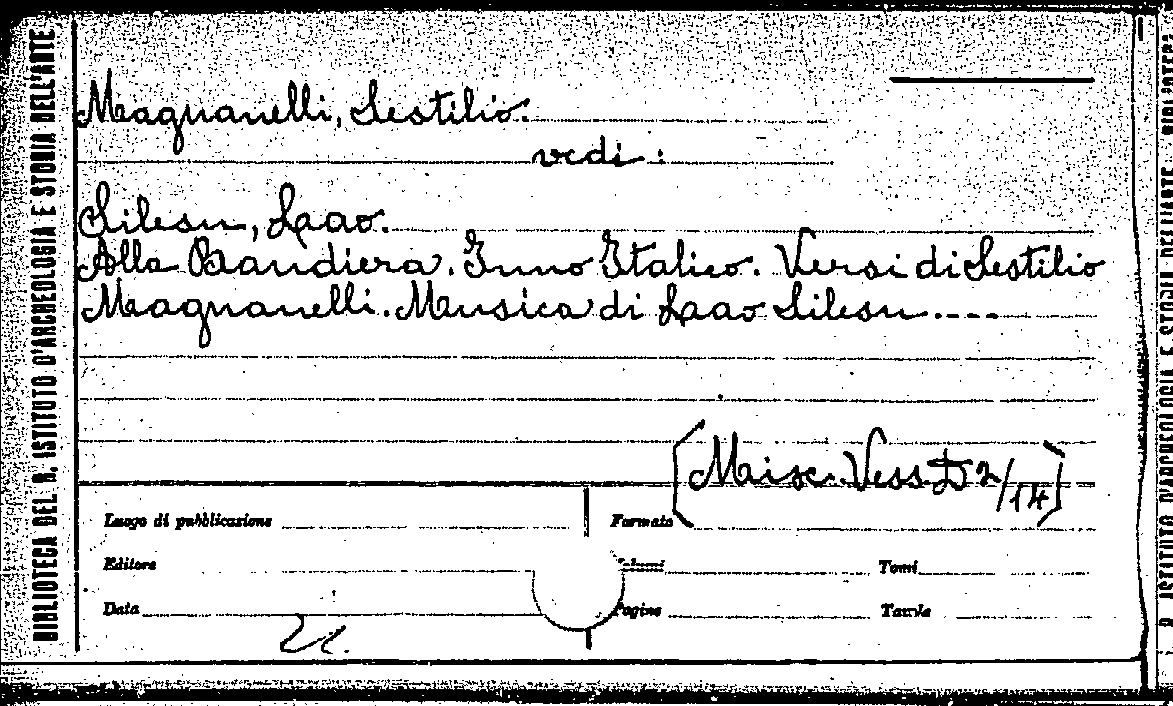 BIBLIOTECA DEL R. ISTITUTO D'ARCHEOLOGIA E STORIA DELL'ARTE
Magnanelli, Sestilio.
vedi :
Silesu, Lao.
Alla Bandiera. Inno Italico. Versi di Sestilio
Magnanelli. Musica di Lao Silesu....
[Misc. Vess. D 2/14]
Luogo di pubblicazione
Formato
Editore
Volumi
Tomi
Data
Pagine
Tavole